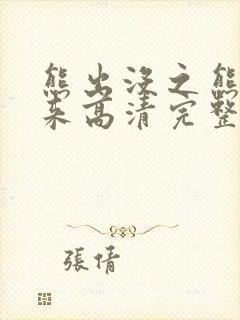 熊出没之熊
来高清完整
張倩